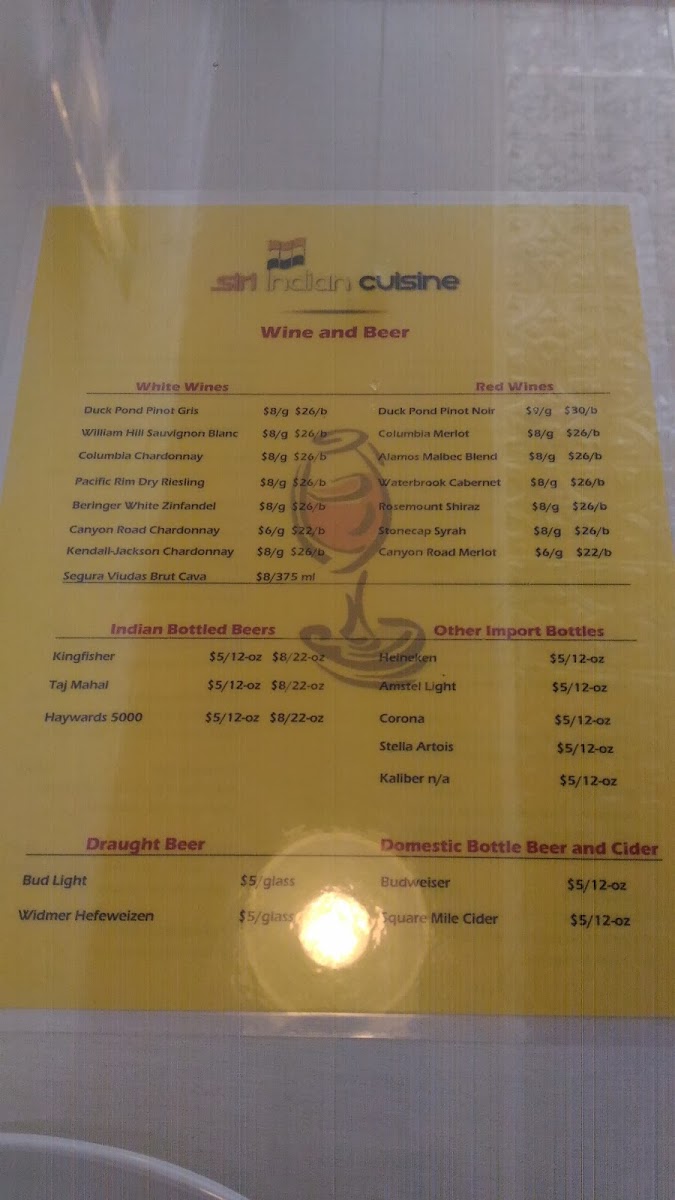 siri indian cuisine
Wine and Beer
White Wines
Duck Pond Pinot Gris $8/g $26/b
William Hill Sauvignon Blanc $8/g $26/b
Columbia Chardonnay $8/g $26/b
Pacific Rim Dry Riesling $8/g $26/b
Beringer White Zinfandel $8/g $26/b
Canyon Road Chardonnay $6/g $22/b
Kendall-Jackson Chardonnay $8/g $26/b
Segura Viudas Brut Cava $8/375 ml
Red Wines
Duck Pond Pinot Noir $9/g $30/b
Columbia Merlot $8/g $26/b
Alamos Malbec Blend $8/g $26/b
Waterbrook Cabernet $8/g $26/b
Rosemount Shiraz $8/g $26/b
Stonecap Syrah $8/g $26/b
Canyon Road Merlot $6/g $22/b
Indian Bottled Beers
Kingfisher $5/12-oz $8/22-oz
Taj Mahal $5/12-oz $8/22-oz
Haywards 5000 $5/12-oz $8/22-oz
Other Import Bottles
Heineken $5/12-oz
Amstel Light $5/12-oz
Corona $5/12-oz
Stella Artois $5/12-oz
Kaliber n/a $5/12-oz
Draught Beer
Bud Light $5/glass
Widmer Hefeweizen $5/glass
Domestic Bottle Beer and Cider
Budweiser $5/12-oz
Square Mile Cider $5/12-oz